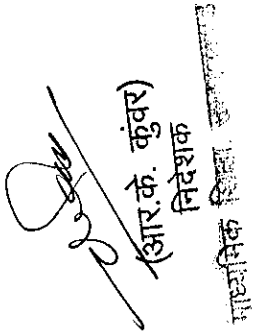 (आर.के. कुंवर)
निदेशक
माध्यमिक शिक्षा